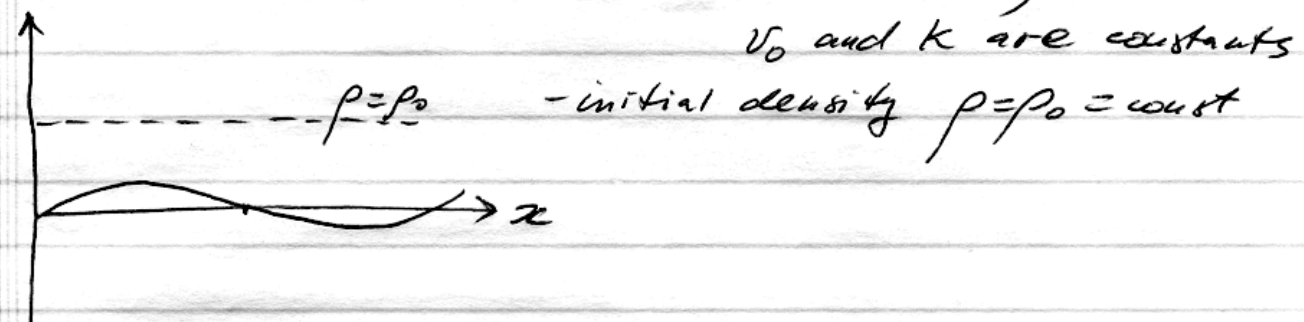 v₀ and k are constants
ρ=ρ₀ - initial density ρ=ρ₀ = const
x